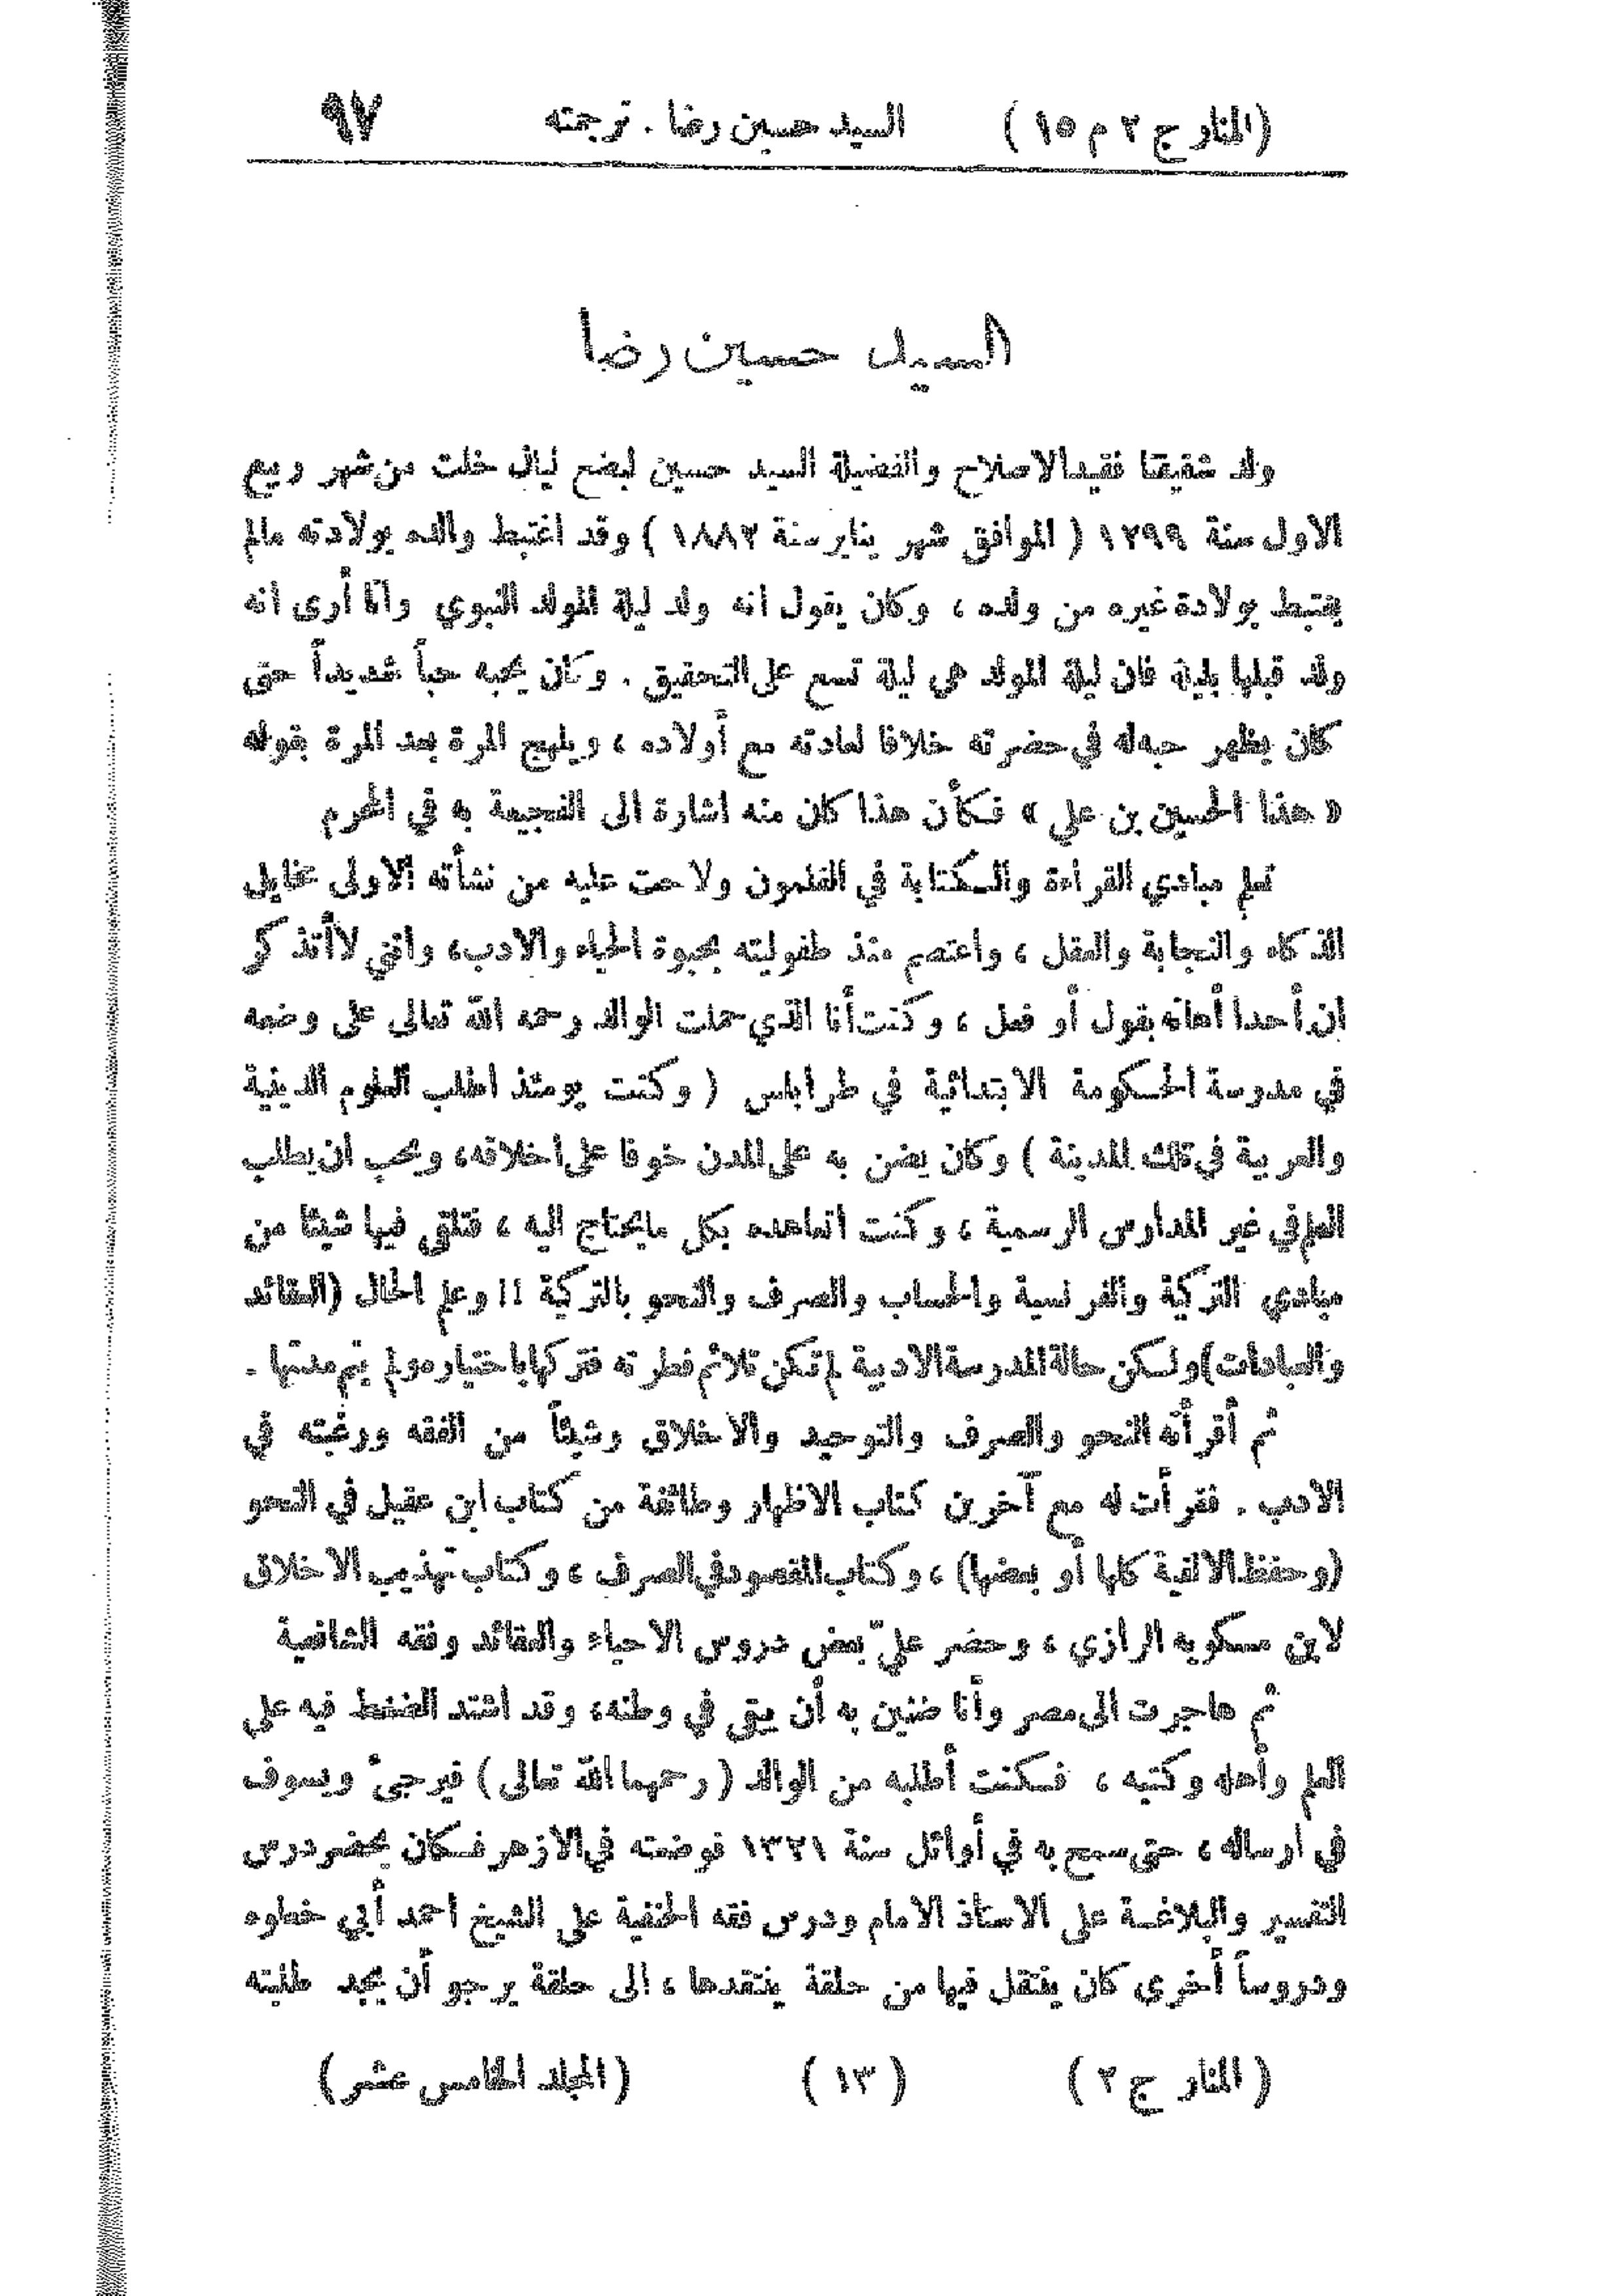 (المنار ج ٢ م ١٥ ) السيد حسين رضا . ترجمته ٩٧
السيد حسين رضا
ولد شقيقنا فقيد الاصلاح والفضيلة السيد حسين لبضع ليال خلت من شهر ربيع
الاول سنة ١٢٩٩ ( الموافق شهر يناير سنة ١٨٨٢ ) وقد اغتبط والده بولادته مالم
يغتبط بولادة غيره من ولده ، وكان يقول انه ولد ليلة المولد النبوي وأنا أرى انه
ولد قبلها بليلة فان ليلة المولد هي ليلة تسع على التحقيق . وكان يحبه حباً شديداً حتى
كان يظهر حبه له في حضرته خلافا لعادته مع أولاده ، ويلهج المرة بعد المرة بقوله
« هذا الحسين بن علي » فكأن هذا كان منه اشارة الى الفجيعة به في المحرم
تعلم مبادي القراءة والكتابة في القلمون ولاحت عليه من نشأته الاولى مخايل
الذكاء والنجابة والعقل ، واعتصم منذ طفوليته بحبوة الحياء والادب، وانني لا أتذكر
ان أحدا أهانه بقول أو فعل ، وكنت أنا الذي حملت الوالد رحمه الله تعالى على وضعه
في مدرسة الحكومة الابتدائية في طرابلس ( وكنت يومئذ اطلب العلوم الدينية
والعربية في تلك المدينة ) وكان يضن به على المدن خوفا على أخلاقه، ويحب ان يطلب
العلم في غير المدارس الرسمية ، وكنت اتعاهده بكل مايحتاج اليه ، فتلقى فيها شيئا من
مبادي التركية والفرنسية والحساب والصرف والنحو بالتركية !! وعلم الحال (العقائد
والعبادات) ولكن حالة المدرسة الادبية لم تكن تلائم فطرته فتركها باختياره ولم يتم مدتها .
ثم أقرأته النحو والصرف والتوحيد والاخلاق وشيئاً من الفقه ورغبته في
الادب . فقرأت له مع آخرين كتاب الاظهار وطائفة من كتاب ابن عقيل في النحو
(وحفظ الالفية كلها أو بعضها) ، وكتاب المقصود في الصرف ، وكتاب تهذيب الاخلاق
لابن مسكويه الرازي ، وحضر عليّ بعض دروس الاحياء والعقائد وفقه الشافعية
ثم هاجرت الى مصر وأنا ضنين به أن يبقى في وطنه، وقد اشتد الضغط فيه على
العلم وأهله وكتبه ، فكنت أطلبه من الوالد ( رحمهما الله تعالى ) فيرجئ ويسوف
في ارساله ، حتى سمح به في أوائل سنة ١٣٢١ فوضعته في الازهر فكان يحضر درس
التفسير والبلاغة على الاستاذ الامام ودرس فقه الحنفية على الشيخ احمد أبي خطوه
ودروساً أخرى كان ينتقل فيها من حلقة ينتقدها ، الى حلقة يرجو أن يجد طلبته
( المنار ج ٢ ) ( ١٣ ) (المجلد الخامس عشر)